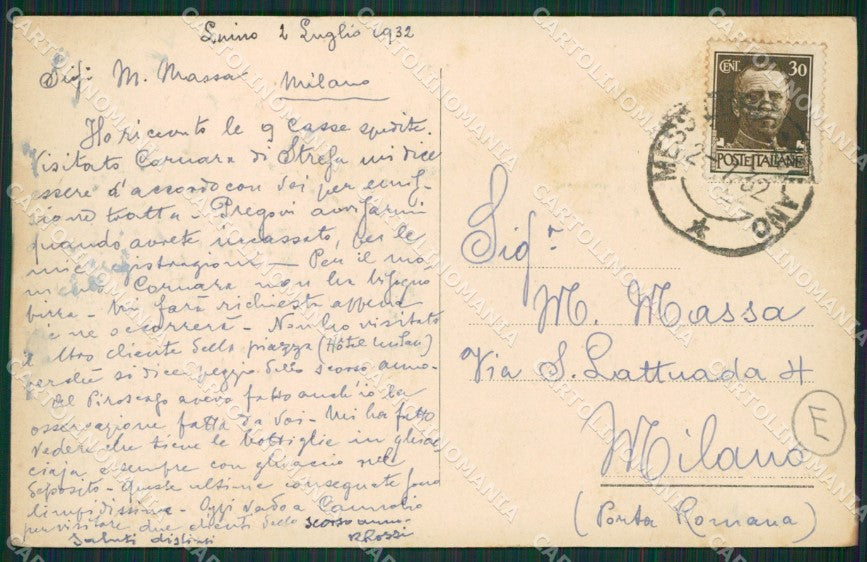 Luino 2 Luglio 1932
Sigr. M. Massa
Milano
Ho ricevuto le 9 Casse spedite.
Visitato Cornara di Stresa mi dice
essere d'accordo con voi per
tratta - Pregovi avvisarmi
quando avrete incassato, per le
mie registrazioni - Per il mo-
mento Cornara non ha bisogno
birra - Vi farà richiesta appena
ne occorrerà - Non ho visitato
l'altro cliente della piazza (Hôtel Milan)
perché si dice peggio dello scorso anno -
Al Piroscafo avevo fatto anch'io la
osservazione fatta da voi - Mi ha fatto
vedere che tiene le bottiglie in ghiac
ciaja e sempre con ghiaccio nel
deposito - Queste ultime consegnate sono
limpidissime - Oggi vado a Cannobio
per visitare due clienti dello scorso anno -
Saluti distinti
RRossi
CENT. 30
POSTE ITALIANE
MESS
ANO
Sigr.
M. Massa
Via S. Lattuada 4
Milano
(Porta Romana)
E
CARTOLINOMANIA